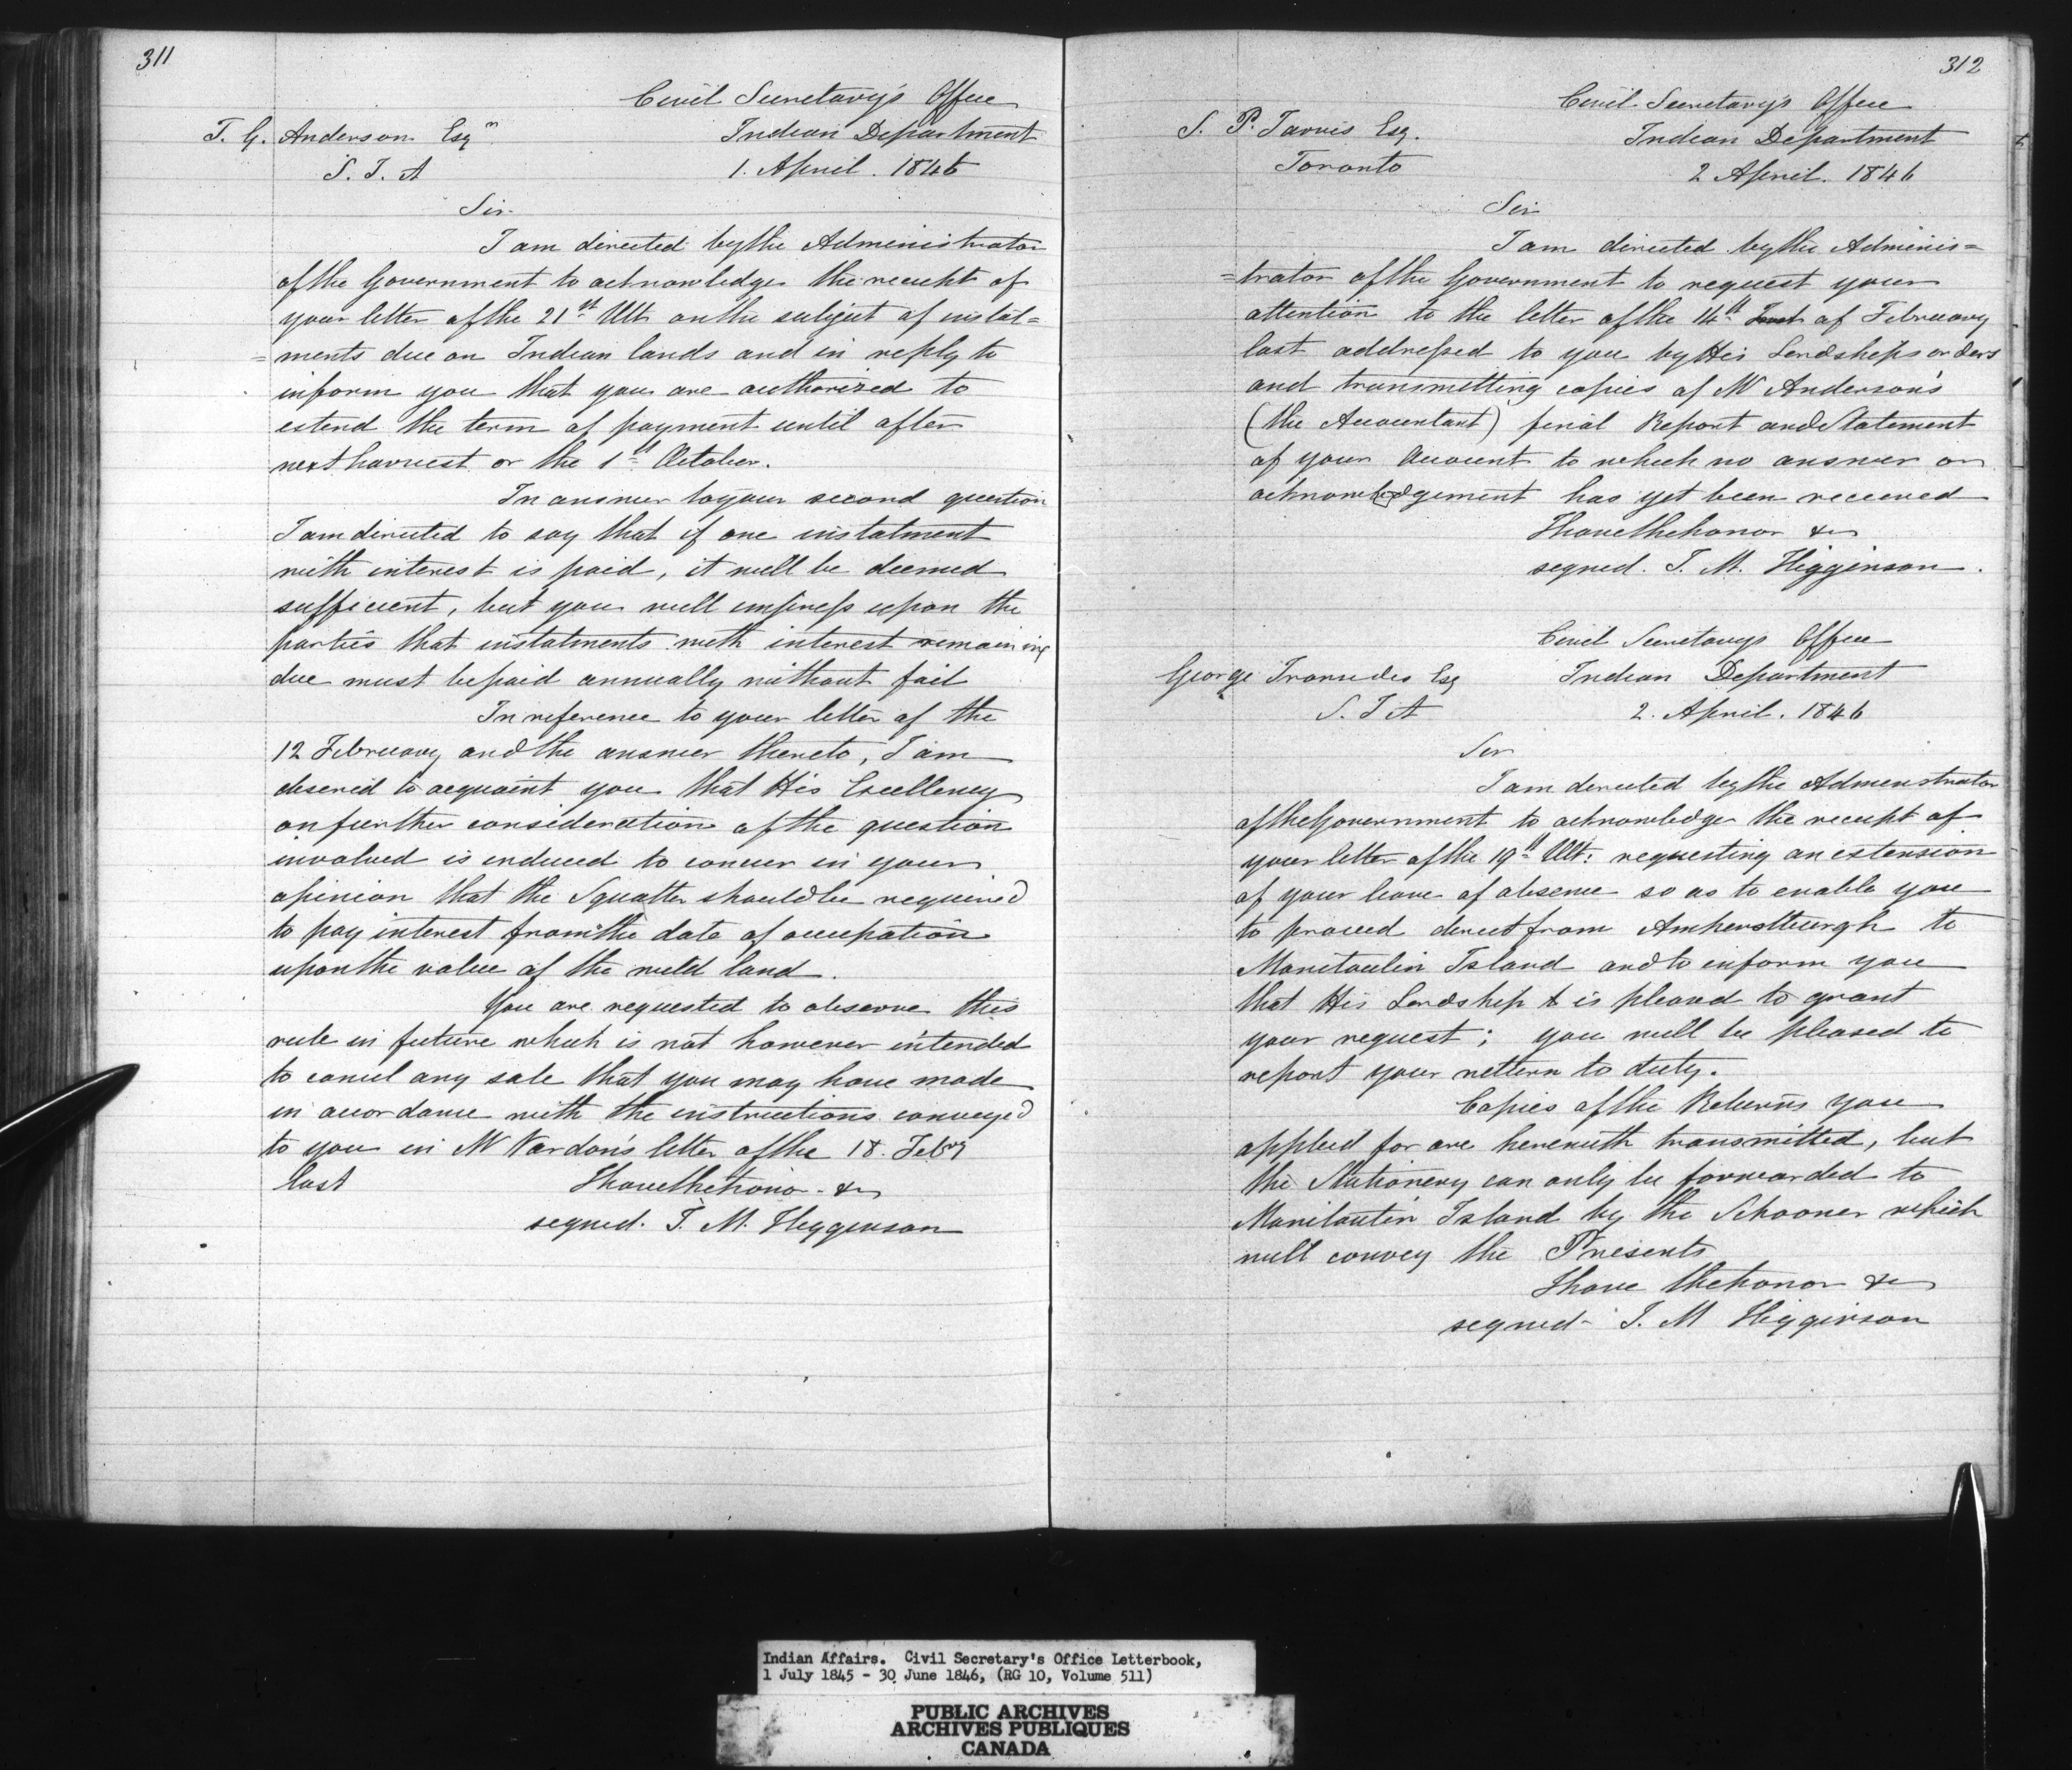 311
Civil Secretary's Office
T. G. Anderson Esqr
Indian Department
S. I. A
1. April. 1846
Sir
I am directed by the Administrator
of the Government to acknowledge the receipt of
your letter of the 21st Ult on the subject of instal=
=ments due on Indian lands and in reply to
inform you that you are authorized to
extend the term of payment until after
next harvest or the 1st October.
In answer to your second question
I am directed to say that if one instalment
with interest is paid, it will be deemed
sufficient, but you will impress upon the
parties that instalments with interest remaining
due must be paid annually without fail
In reference to your letter of the
12 February and the answer thereto, I am
desired to acquaint you that His Excellency
on further consideration of the question
involved is induced to concur in your
opinion that the Squatter should be required
to pay interest from the date of occupation
upon the value of the wild land.
You are requested to observe this
rule in future which is not however intended
to cancel any sale that you may have made
in accordance with the instructions conveyed
to you in Mr Vardon's letter of the 18. Feby
last
I have the honor &c
signed. J. M. Higginson
312
Civil Secretary's Office
S. P. Jarvis Esq.
Indian Department
Toronto
2 April. 1846
Sir
I am directed by the Adminis=
=trator of the Government to request your
attention to the letter of the 14th Inst of February
last addressed to you by His Lordships orders
and transmitting copies of Mr Anderson's
(the Accountant) final Report and Statement
of your Account to which no answer or
acknowledgement has yet been received
I have the honor &c
signed. J. M. Higginson.
Civil Secretarys Office
George Ironsides Esq
Indian Department
S. I A
2. April. 1846
Sir
I am directed by the Adminstrator
of the Government to acknowledge the receipt of
your letter of the 19th Ult: requesting an extension
of your leave of absence so as to enable you
to proceed direct from Amherstburgh to
Manitoulin Island and to inform you
that His Lordship is pleased to grant
your request; you will be pleased to
report your return to duty.
Copies of the Returns you
applied for are herewith transmitted, but
the Stationery can only be forwarded to
Manitoulin Island by the Schooner which
will convey the Presents
I have the honor &c
signed- J. M Higginson
Indian Affairs. Civil Secretary's Office Letterbook,
1 July 1845 - 30 June 1846, (RG 10, Volume 511)
PUBLIC ARCHIVES
ARCHIVES PUBLIQUES
CANADA